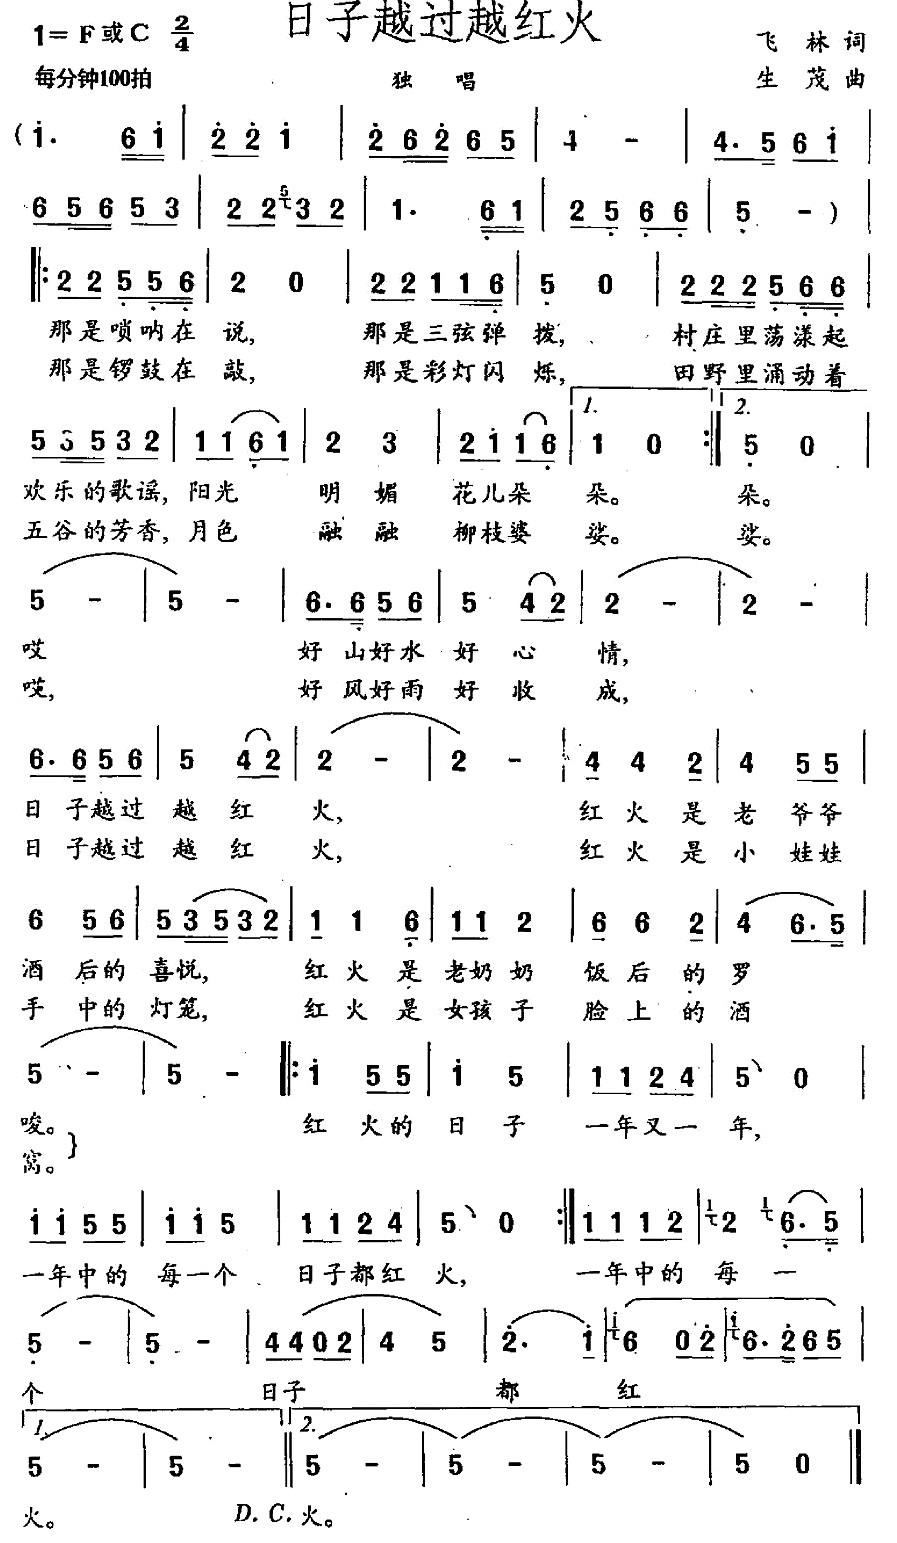 日子越过越红火
1= F或C 2/4
飞 林 词
每分钟100拍
独 唱
生 茂 曲
( i· 6 i | 2 2 i | 2 6 2 6 5 | 4 - | 4· 5 6 i |
6 5 6 5 3 | 2 2 5 3 2 | 1· 6 1 | 2 5 6 6 | 5 - ) |
‖: 2 2 5 5 6 | 2 0 | 2 2 1 1 6 | 5 0 | 2 2 2 5 6 6 |
那是唢呐在 说, 那是三弦弹 拨, 村庄里荡漾起
那是锣鼓在 敲, 那是彩灯闪 烁, 田野里涌动着
5 3 5 3 2 | 1 1 6 1 | 2 3 | 2 1 1 6 | 1. 1 0 :‖ 2. 5 0 |
欢乐的歌谣, 阳光 明 媚 花儿朵 朵。 朵。
五谷的芳香, 月色 融 融 柳枝婆 娑。 娑。
5 - | 5 - | 6· 6 5 6 | 5 4 2 | 2 - | 2 - |
哎 好 山好水 好 心 情,
哎, 好 风好雨 好 收 成,
6· 6 5 6 | 5 4 2 | 2 - | 2 - | 4 4 2 | 4 5 5 |
日 子越过 越 红 火, 红 火 是 老 爷爷
日 子越过 越 红 火, 红 火 是 小 娃娃
6 5 6 | 5 3 5 3 2 | 1 1 6 | 1 1 2 | 6 6 2 | 4 6· 5 |
酒 后的 喜悦, 红 火 是 老奶 奶 饭 后 的 罗
手 中的 灯笼, 红 火 是 女孩 子 脸 上 的 酒
5 - | 5 - ‖: i 5 5 | i 5 | 1 1 2 4 | 5 0 |
唆。 红 火的 日 子 一年又一 年,
窝。 }
i i 5 5 | i i 5 | 1 1 2 4 | 5 0 :‖ 1 1 1 2 | 1 2 1 6· 5 |
一年中的 每一个 日子都红 火, 一年中的 每 一
5 - | 5 - | 4 4 0 2 | 4 5 | 2· i | i 6 0 2 | i 6· 2 6 5 |
个 日子 都 红
1. 5 - | 5 - ‖ 2. 5 - | 5 - | 5 - | 5 0 ‖
火。 D. C. 火。